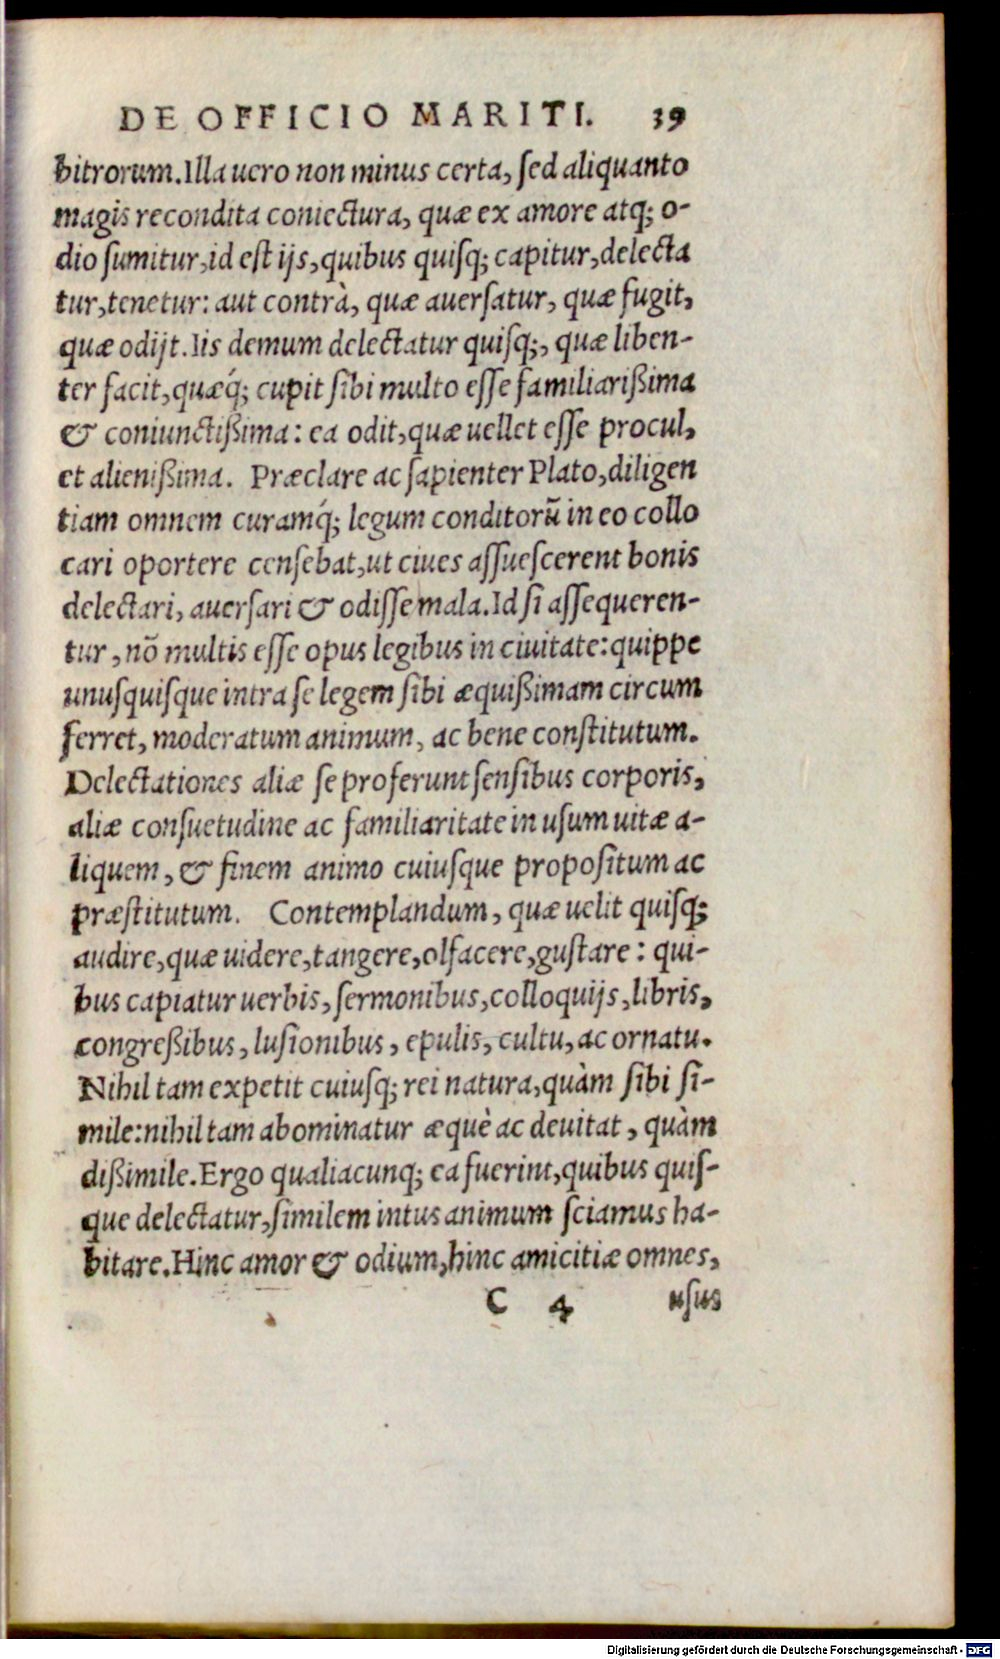 DE OFFICIO MARITI. 39
bitrorum. Illa uero non minus certa, sed aliquanto
magis recondita coniectura, quæ ex amore atq; o-
dio sumitur, id est ijs, quibus quisq; capitur, delecta
tur, tenetur: aut contrà, quæ auersatur, quæ fugit,
quæ odijt. Iis demum delectatur quisq;, quæ liben-
ter facit, quæq́; cupit sibi multo esse familiarißima
& coniunctißima: ea odit, quæ uellet esse procul,
et alienißima. Præclare ac sapienter Plato, diligen
tiam omnem curamq́; legum conditorũ in eo collo
cari oportere censebat, ut ciues assuescerent bonis
delectari, auersari & odisse mala. Id si assequeren-
tur, nõ multis esse opus legibus in ciuitate: quippe
unusquisque intra se legem sibi æquißimam circum
ferret, moderatum animum, ac bene constitutum.
Delectationes aliæ se proferunt sensibus corporis,
aliæ consuetudine ac familiaritate in usum uitæ a-
liquem, & finem animo cuiusque propositum ac
præstitutum. Contemplandum, quæ uelit quisq;
audire, quæ uidere, tangere, olfacere, gustare: qui-
bus capiatur uerbis, sermonibus, colloquijs, libris,
congreßibus, lusionibus, epulis, cultu, ac ornatu.
Nihil tam expetit cuiusq; rei natura, quàm sibi si-
mile: nihil tam abominatur æquè ac deuitat, quàm
dißimile. Ergo qualiacunq; ea fuerint, quibus quis-
que delectatur, similem intus animum sciamus ha-
bitare. Hinc amor & odium, hinc amicitiæ omnes,
C 4 usus
Digitalisierung gefördert durch die Deutsche Forschungsgemeinschaft - DFG